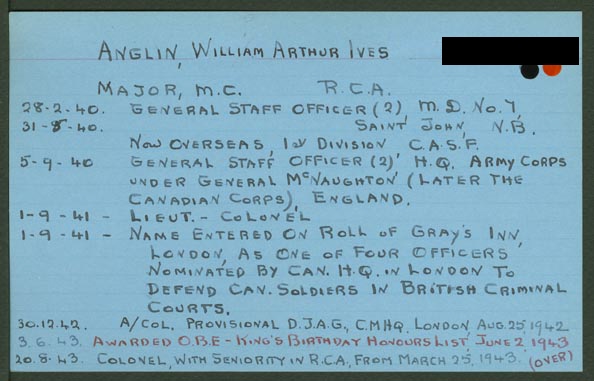 ANGLIN, WILLIAM ARTHUR IVES
MAJOR, M.C. R.C.A.
28-2-40. GENERAL STAFF OFFICER (2), M.D. No. 7,
31-8-40. SAINT JOHN, N.B.
NOW OVERSEAS, 1ST DIVISION C.A.S.F.
5-9-40 GENERAL STAFF OFFICER (2) H.Q. ARMY CORPS
UNDER GENERAL McNAUGHTON (LATER THE
CANADIAN CORPS), ENGLAND.
1-9-41 - LIEUT.- COLONEL
1-9-41 - NAME ENTERED ON ROLL OF GRAY'S INN,
LONDON, AS ONE OF FOUR OFFICERS
NOMINATED BY CAN. H.Q. IN LONDON TO
DEFEND CAN. SOLDIERS IN BRITISH CRIMINAL
COURTS.
30.12.42. A/COL. PROVISIONAL D.J.A.G., C.M.H.Q. LONDON, AUG. 25, 1942
3.6.43. AWARDED O.B.E - KING'S BIRTHDAY HONOURS LIST, JUNE 2, 1943
20.8.43. COLONEL, WITH SENIORITY IN R.C.A., FROM MARCH 25, 1943. (OVER)